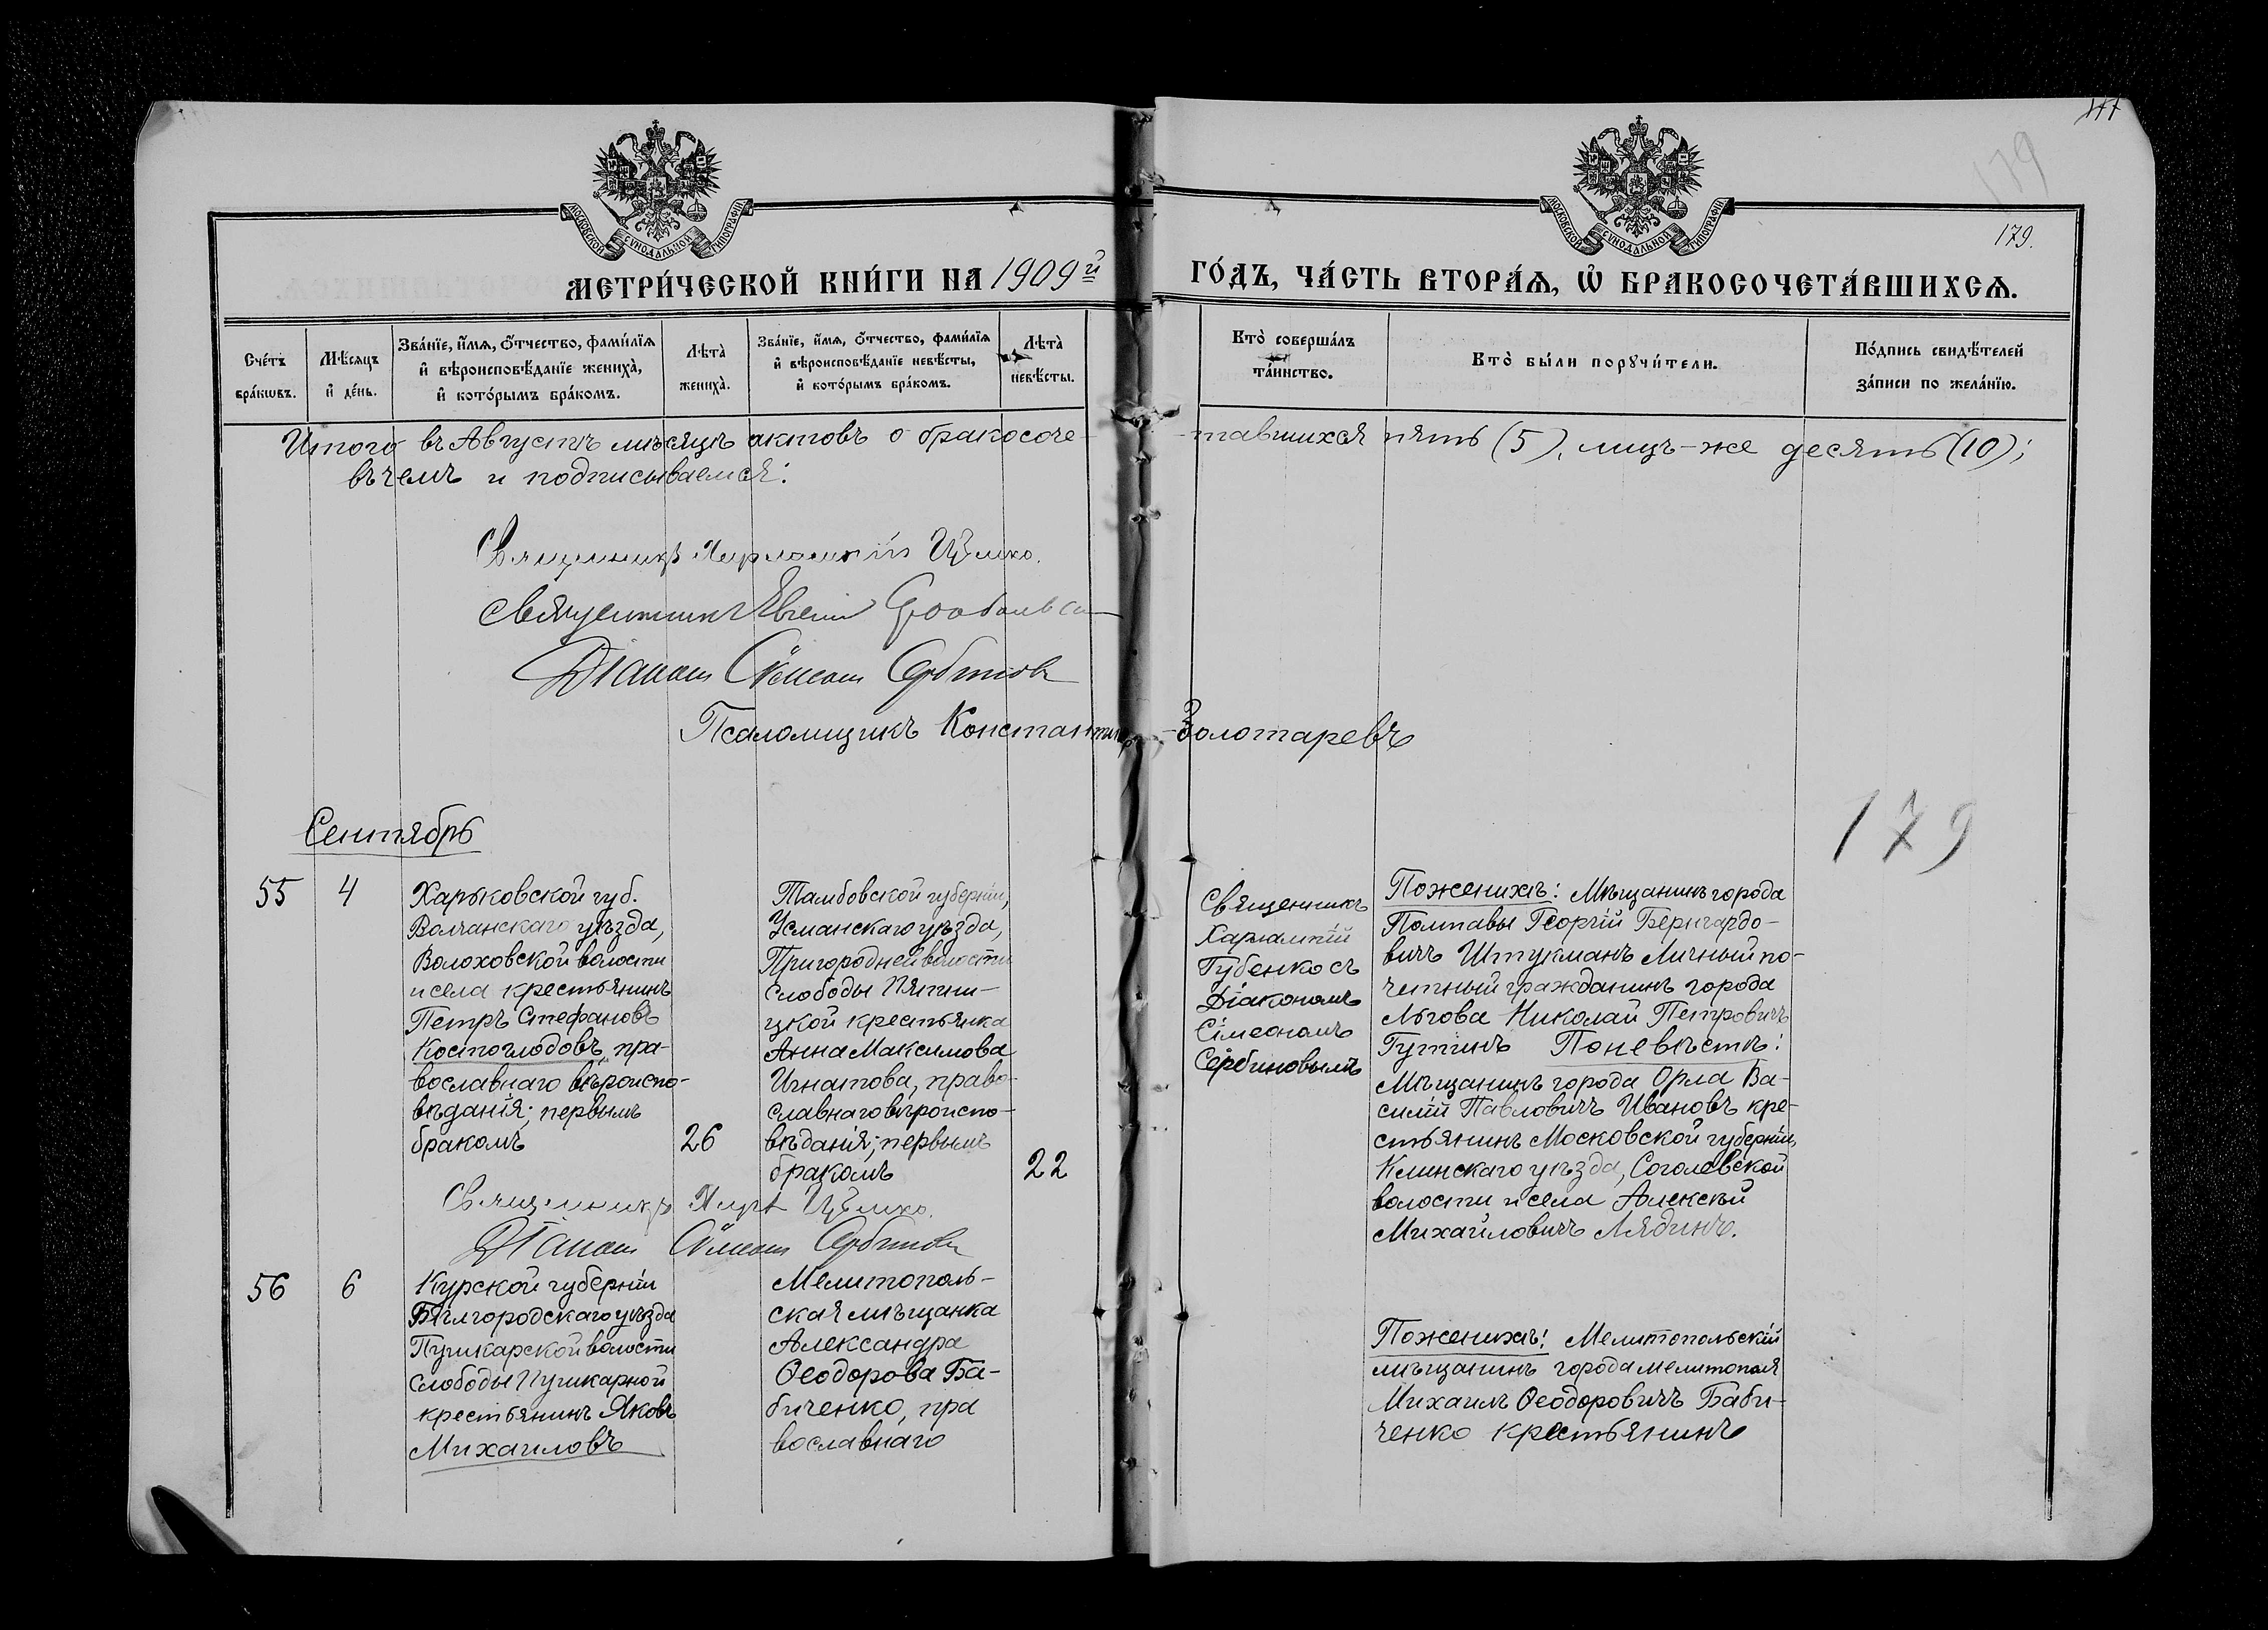 177
179
179.
МОСКОВСКОЙ СѴНОДАЛЬНОЙ ТИПОГРАФІИ
МОСКОВСКОЙ СѴНОДАЛЬНОЙ ТИПОГРАФІИ
МЕТРИ́ЧЕСКОЙ КНИ́ГИ НА 1909й ГО́ДЪ, ЧА́СТЬ ВТОРА́Ѧ, Ѽ БРАКОСОЧЕТА́ВШИХСѦ.
Сче́тъ бра́кѡвъ.
Мѣ́сяцъ и҆ де́нь.
Зва́нїе, и҆́мѧ, ѻ҆́тчество, фами́лїѧ
и҆ вѣроисповѣ́данїе жениха̀,
и҆ кото́рымъ бра́комъ.
Лѣ̑та̀ жениха̀.
Зва́нїе, и҆́мѧ, ѻ҆́тчество, фами́лїѧ
и҆ вѣроисповѣ́данїе невѣ́сты,
и҆ кото́рымъ бра́комъ.
Лѣ̑та̀ невѣ́сты.
Кто̀ соверша́лъ
та́инство.
Кто̀ бы́ли порꙋчи́тели.
По́дпись свидѣ́телей
за́писи по жела́нїю.
Итого въ Августѣ мѣсяцѣ актовъ о бракосоче-тавшихся пять (5), лицъ-же десять (10);
въ чемъ и подписываемся:
Священникъ Харлампій
Священникъ Евгеній
Діаконъ Сѵмеонъ Сербиновъ
Псаломщикъ Константинъ Золотаревъ
Сентябрь
179
55
4
Харьковской губ.
Волчанскаго уѣзда,
Волоховской волости
и села крестьянинъ
Петръ Стефановъ
Костоглодовъ, пра-
вославнаго вѣроиспо-
вѣданія; первымъ
бракомъ
26
Тамбовской губерніи,
Усманскаго уѣзда,
Пригородней волости
слободы Пятни-
цкой крестьянка
Анна Максимова
Игнатова, право-
славнаго вѣроиспо-
вѣданія; первымъ
бракомъ
22
Священникъ
Харлампій
Губенко съ
Діакономъ
Сімеономъ
Сербиновымъ
По женихѣ: Мѣщанинъ города
Полтавы Георгій Бернгардо-
вичъ Штукманъ Личный по-
четный гражданинъ города
Льгова Николай Петровичъ
Гутинъ По невѣстѣ:
Мѣщанинъ города Орла Ва-
силій Павловичъ Ивановъ кре-
стьянинъ Московской губерніи,
Клинскаго уѣзда, Соголевской
волости и села Алексѣй
Михайловичъ Лядинъ.
Священникъ Харл.
Діаконъ Сѵмеонъ Сербиновъ
56
6
Курской губерніи
Бѣлгородскаго уѣзда
Пушкарской волости
слободы Пушкарной
крестьянинъ Яковъ
Михаиловъ
Мелитополь-
ская мѣщанка
Александра
Ѳеодорова Ба-
биченко, пра
вославнаго
По женихѣ: Мелитопольскій
мѣщанинъ города Мелитополя
Михаилъ Ѳеодоровичъ Баби-
ченко крестьянинъ